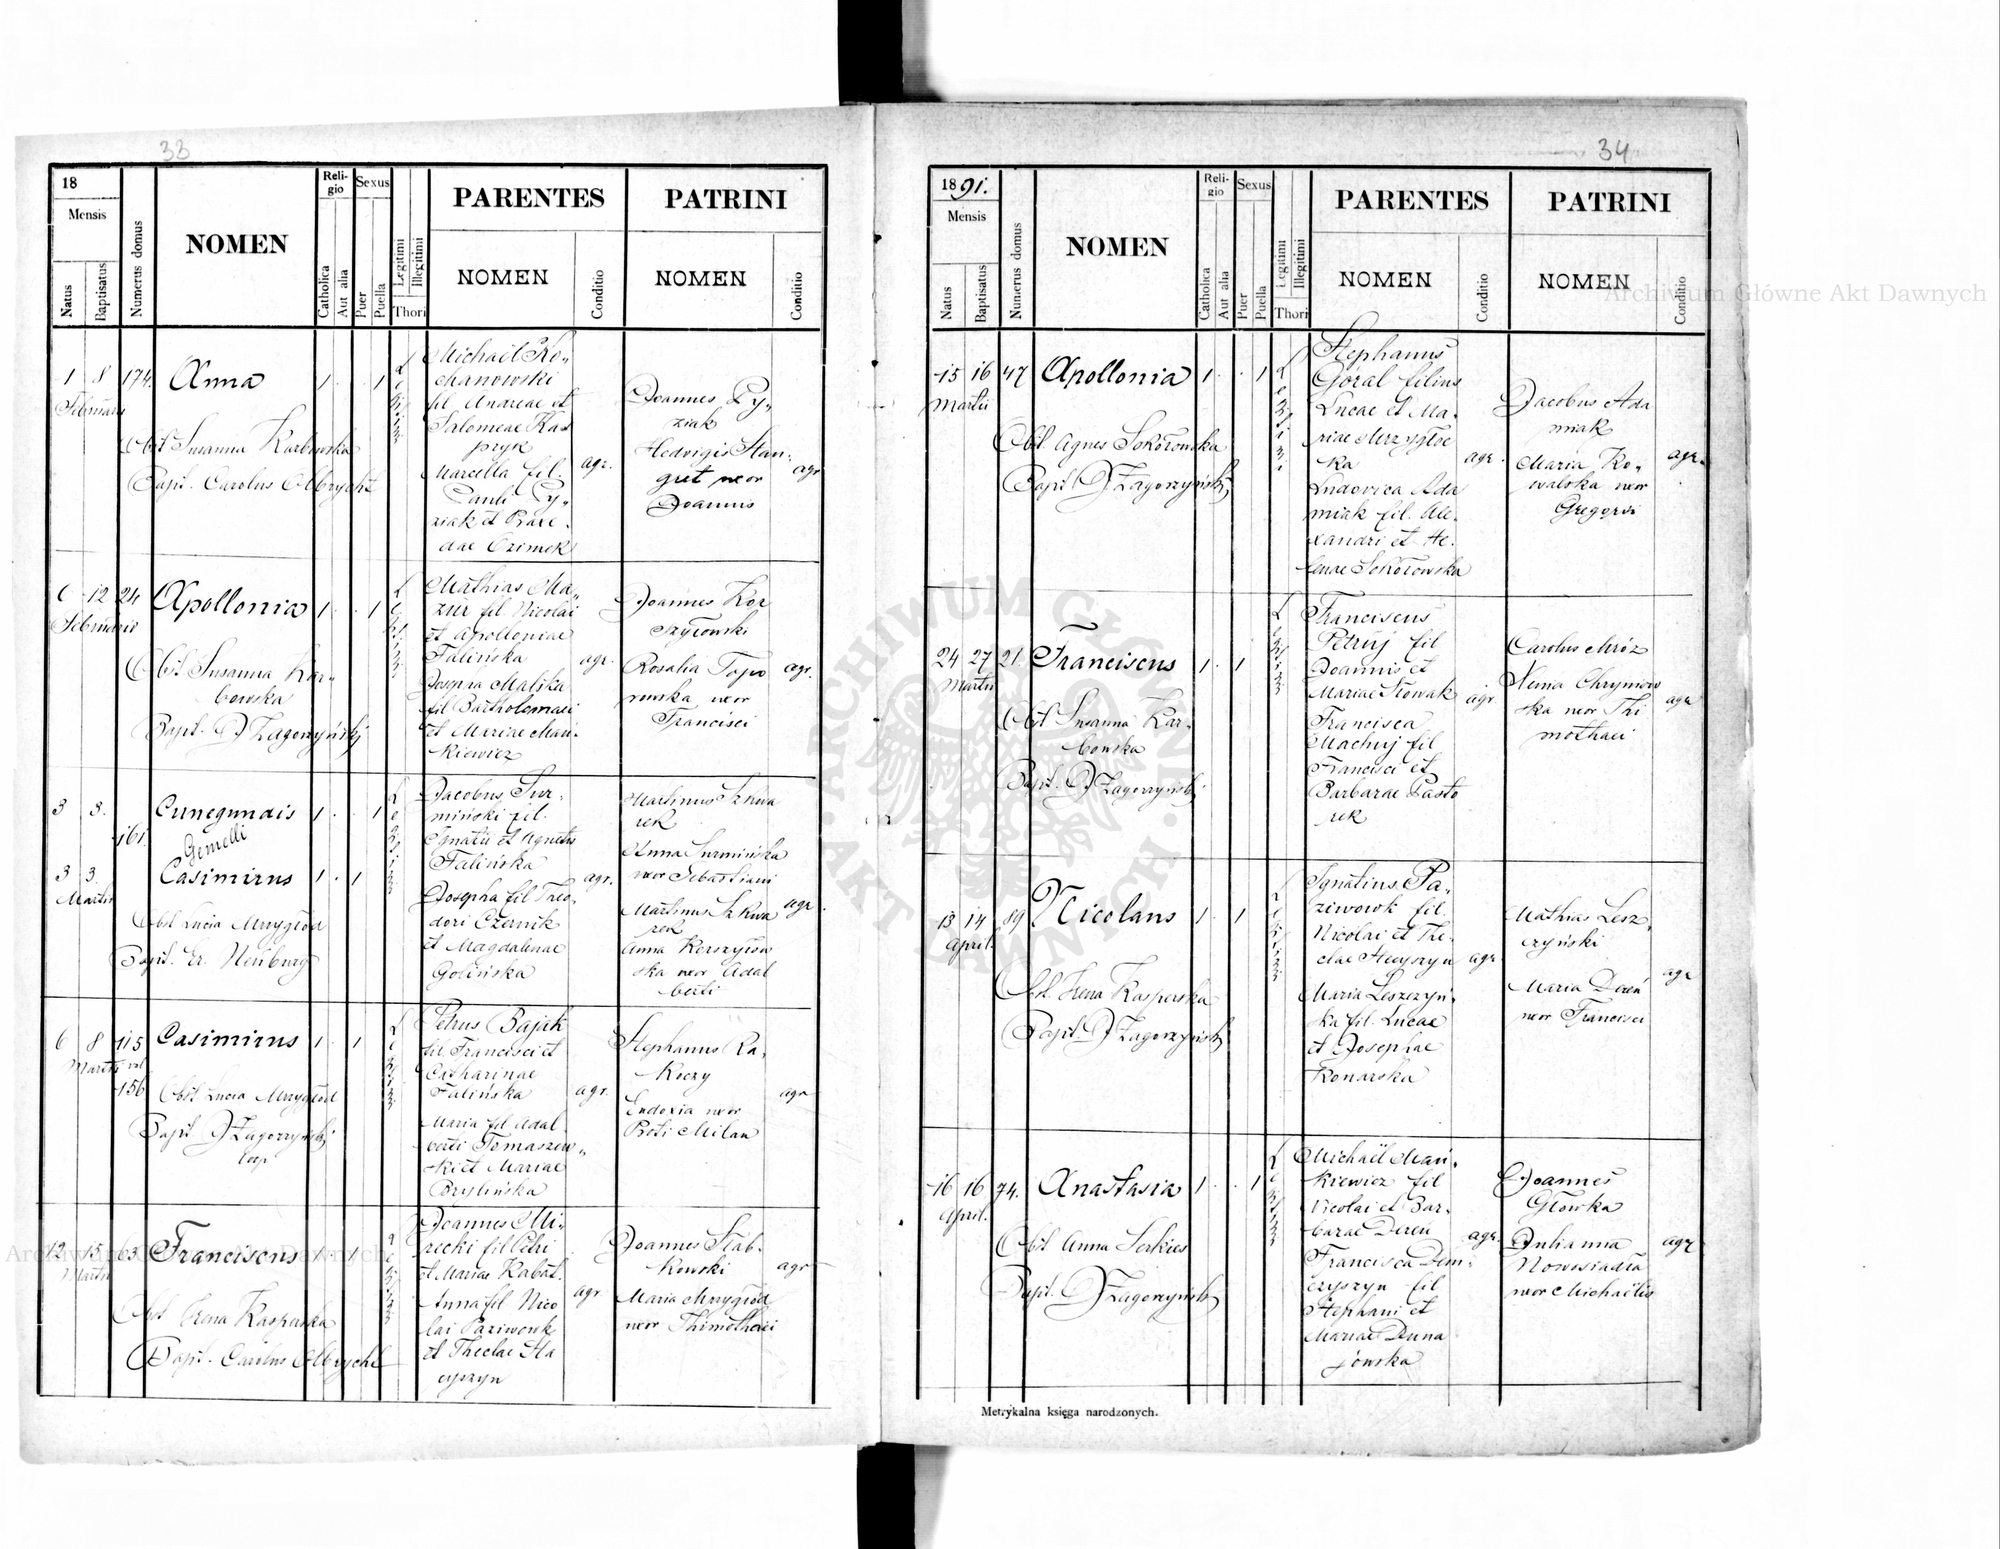 33
18
Mensis
Natus
Baptisatus
Numerus domus
NOMEN
Religio
Catholica
Aut alia
Sexus
Puer
Puella
Legitimi
Illegitimi
Thori
PARENTES
NOMEN
Conditio
PATRINI
NOMEN
Conditio
1 8 174. Anna 1 . . 1
Februarii
Obst. Susanna Karbowska
Bapt. Carolus Olbrycht
Michaël Ko„
chanowski
fil Andreae et
Salomeae Kas
pryk
Marcella fil.
Pauli Py„
ziak et Praxe.
dae Ozimek
agr.
Joannes Py„
ziak
Hedvigis Stan„
gret uxor
Joannis
agr
6 12 24 Apollonia 1 . . 1
Februarii
Obst. Susanna Kar„
bowska
Bapt. J Zagorzyński
Mathias Ma„
zur fil Nicolai
et Apolloniae
Falińska
Josepha Malika
fil Bartholomaei
et Mariae Man„
kiewicz
agr.
Joannes Kor
szyłowski
Rosalia Topo
rowska uxor
Francisci
agr.
3 3. Cunegundis 1 . . 1
161.
Gemelli
3 3. Casimirus 1 . 1
Martii
Obst Lucia Mrzygłód
Bapt. Er. Neüburg
Jacobus Sur„
miński fil.
Ignatii et Agnetis
Falińska
Josepha fil Theo„
dori Czernik
et Magdalenae
Golińska
agr.
Martinus Szkwa
rek
Anna Surmińska
uxor Sebastiani
Martinus Szkwa
rek
Anna Korszyłow
ska uxor Adal
berti
agr.
6 8 115 Casimirus 1 . 1
Martii vel
156
Obst Lucia Mrzygłód
Bapt. J Zagorzyński
coop
Petrus Bajak
fil. Francisci et
Catharinae
Falińska
Maria fil Adal„
berti Tomaszew„
ski et Mariae
Brylińska
agr.
Stephanus Ra„
koczy
Eudoxia uxor
Proti Milan
agr
12 15 63. Franciscus 1 . 1
Martii
Obst Irena Kasperska
Bapt. Carolus Olbrycht
Joannes Mi„
recki fil Petri
et Mariae Kabat.
Anna fil Nico
lai Paziwowk
et Theclae Ha
cyszyn
agr
Joannes Słab„
kowski
Maria Mrzygłód
uxor Thimothaei
agr
34
1891.
Mensis
Natus
Baptisatus
Numerus domus
NOMEN
Religio
Catholica
Aut alia
Sexus
Puer
Puella
Legitimi
Illegitimi
Thori
PARENTES
NOMEN
Conditio
PATRINI
NOMEN
Conditio
15 16 47 Apollonia 1 . . 1
Martii
Obst. Agnes Sokołowska
Bapt. J Zagorzyński
Stephanus
Góral filius
Lucae et Ma„
riae Mrzygłoc
ka
Ludovica Ada
miak fil. Ale„
xandri et He„
lenae Sokołowska
agr.
Jacobus Ada
miak
Maria Ko„
walska uxor
Gregorii
agr.
24 27 21. Franciscus 1 . 1
Martii
Obst Susanna Kar„
bowska
Bapt. J Zagorzyński
Franciscus
Petruj fil
Joannis et
Mariae Nowak
Francisca
Machuj fil
Francisci et
Barbarae Pasto
rek
agr.
Carolus Mróz
Xenia Chrynow
ska uxor Thi
mothaei
agr
13 14 89 Nicolaus 1 . 1
April.
Obst. Irena Kasperska
Bapt. J Zagorzyński
Ignatius Pa„
ziwowk fil.
Nicolai et The„
clae Hacyszyn
Maria Leszczyń„
ska fil. Lucae
et Josephae
Konarska
agr.
Mathias Lesz„
czyński
Maria Dereń
uxor Francisci
agr
16 16 74. Anastasia 1 . . 1
April.
Obst Anna Serkies
Bapt. J Zagorzyński
Michaël Man„
kiewicz fil
Nicolai et Bar„
barae Dereń
Francisca Dem„
czyszyn fil
Stephani et
Mariae Duna
jowska
agr.
Joannes
Główka
Julianna
Nowosiadła
uxor Michaëlis
agr
Metrykalna księga narodzonych.
Archiwum Główne Akt Dawnych
ARCHIWUM GŁÓWNE
AKT DAWNYCH
Archiwum Główne Akt Dawnych